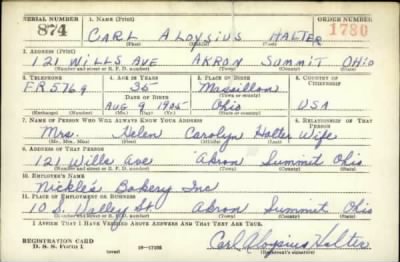 SERIAL NUMBER 1. NAME (Print) ORDER NUMBER
874 CARL ALOYSIUS HALTER 1780
(First) (Middle) (Last)
2. ADDRESS (Print)
121 WILLS AVE AKRON SUMMIT OHIO
(Number and street or R. F. D. number) (Town) (County) (State)
3. TELEPHONE 4. AGE IN YEARS 5. PLACE OF BIRTH 6. COUNTRY OF CITIZENSHIP
FR 5769 35 Massillon
DATE OF BIRTH (Town or county)
AUG 9 1905 Ohio USA
(Exchange) (Number) (Mo.) (Day) (Yr.) (State or country)
7. NAME OF PERSON WHO WILL ALWAYS KNOW YOUR ADDRESS 8. RELATIONSHIP OF THAT PERSON
Mrs. Helen Carolyn Halter Wife
(Mr., Mrs., Miss) (First) (Middle) (Last)
9. ADDRESS OF THAT PERSON
121 Wills Ave Akron Summit Ohio
(Number and street or R. F. D. number) (Town) (County) (State)
10. EMPLOYER'S NAME
Nickles Bakery Inc
11. PLACE OF EMPLOYMENT OR BUSINESS
10 S. Valley St Akron Summit Ohio
(Number and street or R. F. D. number) (Town) (County) (State)
I AFFIRM THAT I HAVE VERIFIED ABOVE ANSWERS AND THAT THEY ARE TRUE.
REGISTRATION CARD
D. S. S. FORM 1 (over) Carl Aloysius Halter
(Registrant's signature)